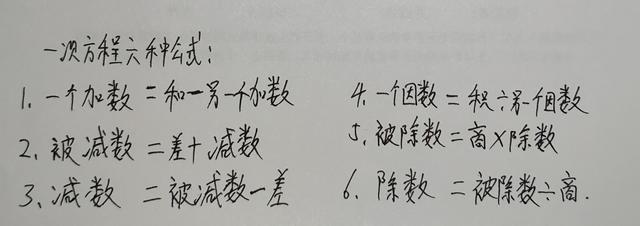 一次方程六种公式：
1. 一个加数 = 和 - 另一个加数
2. 被减数 = 差 + 减数
3. 减数 = 被减数 - 差
4. 一个因数 = 积 ÷ 另一个因数
5. 被除数 = 商 × 除数
6. 除数 = 被除数 ÷ 商.